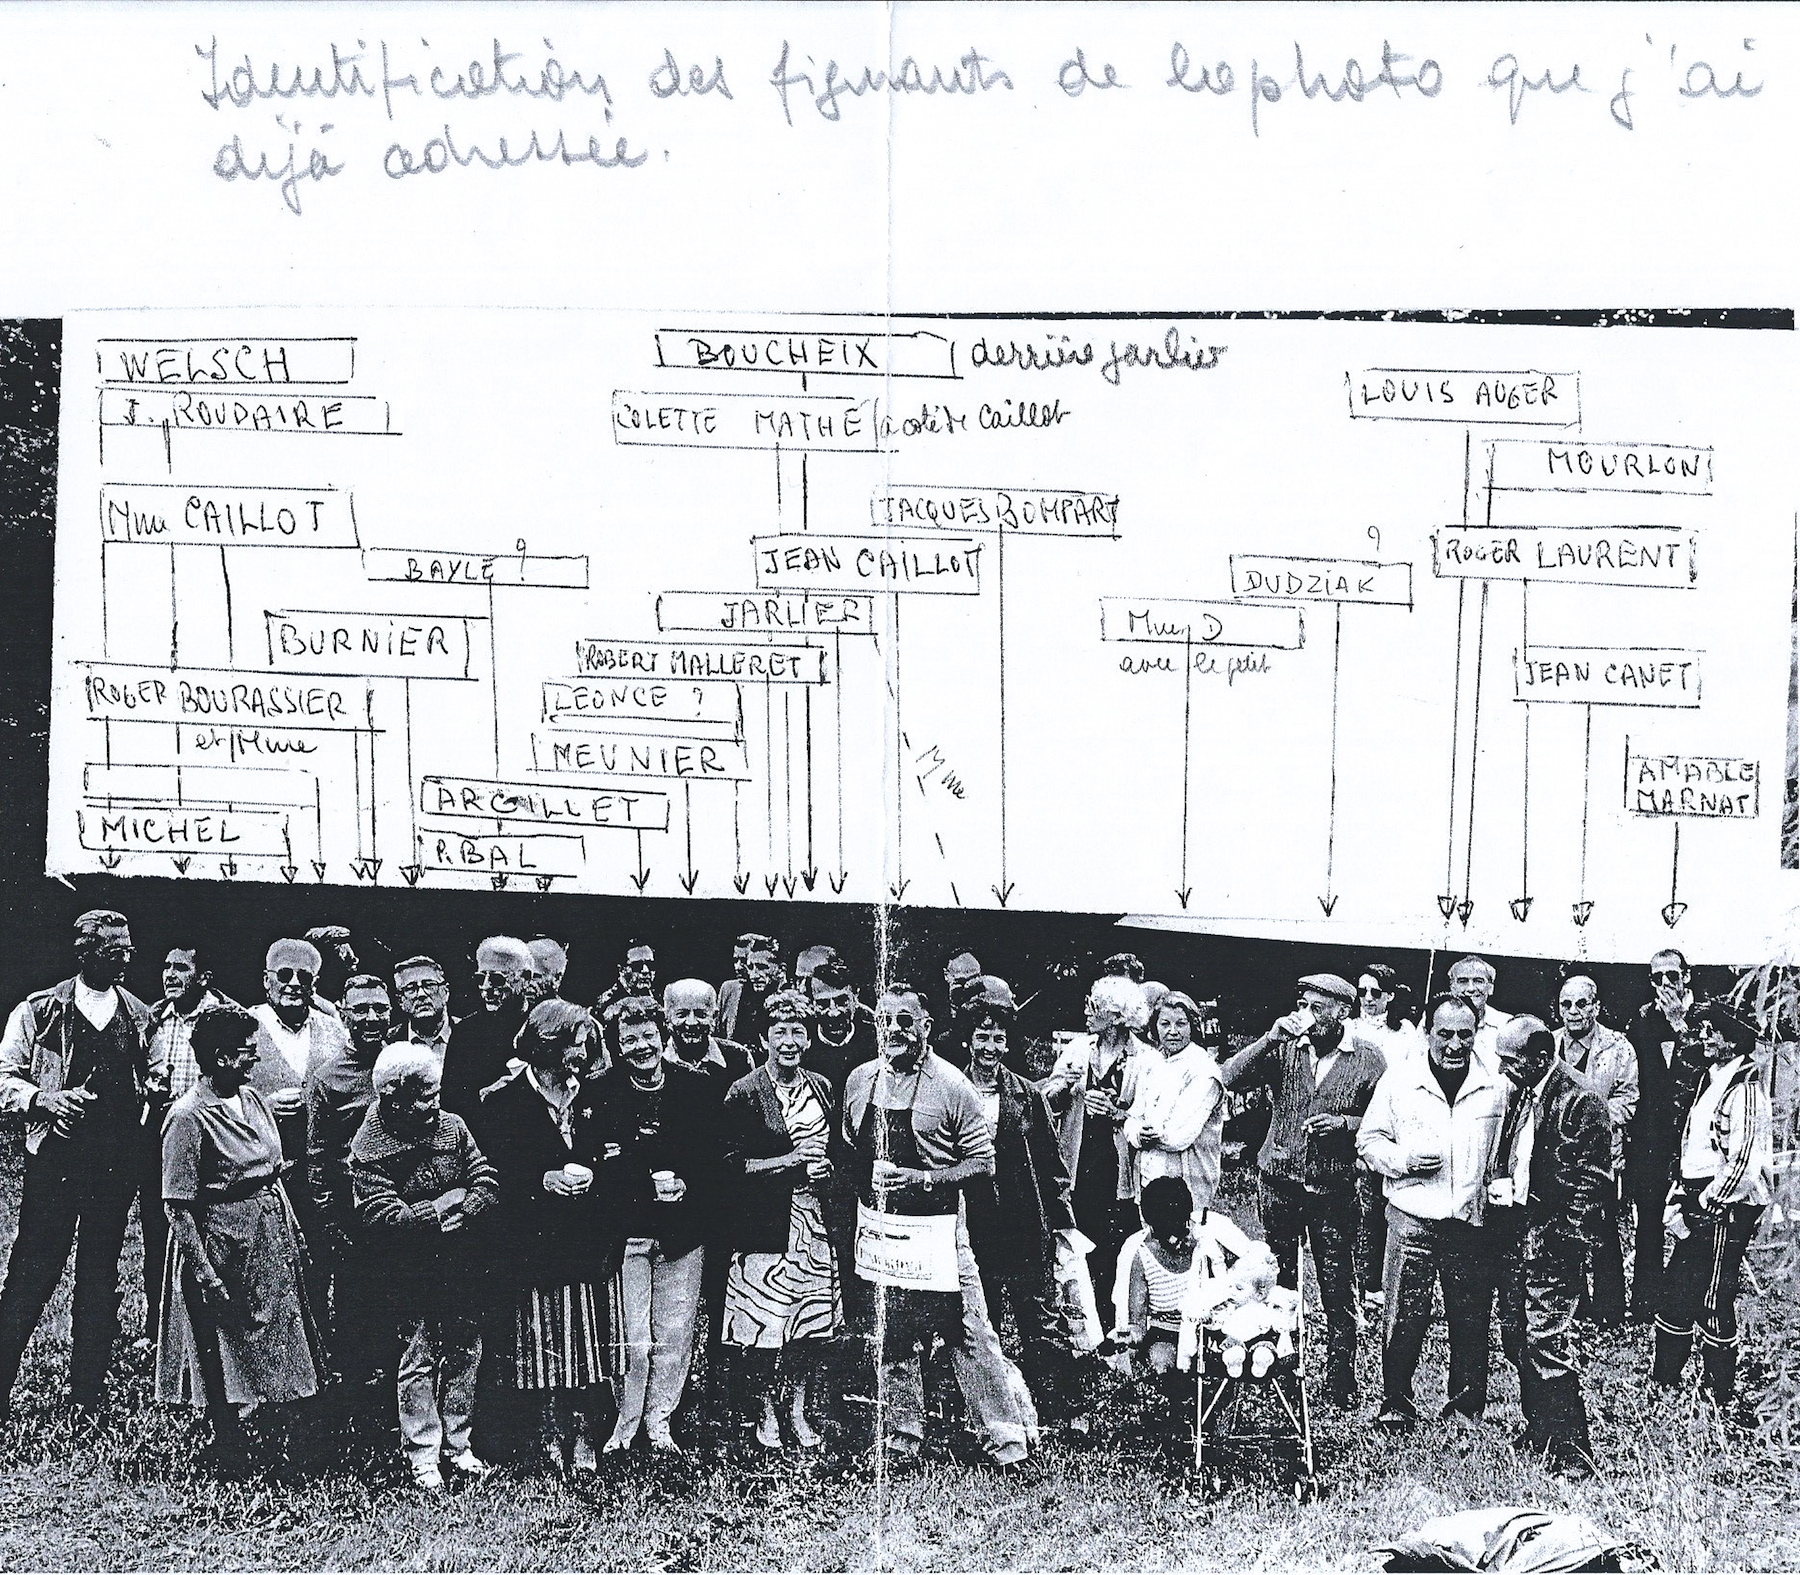 Identification des figurants de la photo que j'ai
déjà adressée.
WELSCH
J. ROUDAIRE
Mme CAILLOT
BAYLE ?
BURNIER
ROGER BOURASSIER
et Mme
MICHEL
ARGILLET
P. BAL
BOUCHEIX derrière Jarlier
COLETTE MATHE à coté de Caillot
JACQUES BOMPART
JEAN CAILLOT
JARLIER
ROBERT MALLERET
LEONCE ?
MEUNIER
Mme
Mme D
avec le petit
?
DUDZIAK
LOUIS AUGER
MOURLON
ROGER LAURENT
JEAN CANET
AMABLE
MARNAT